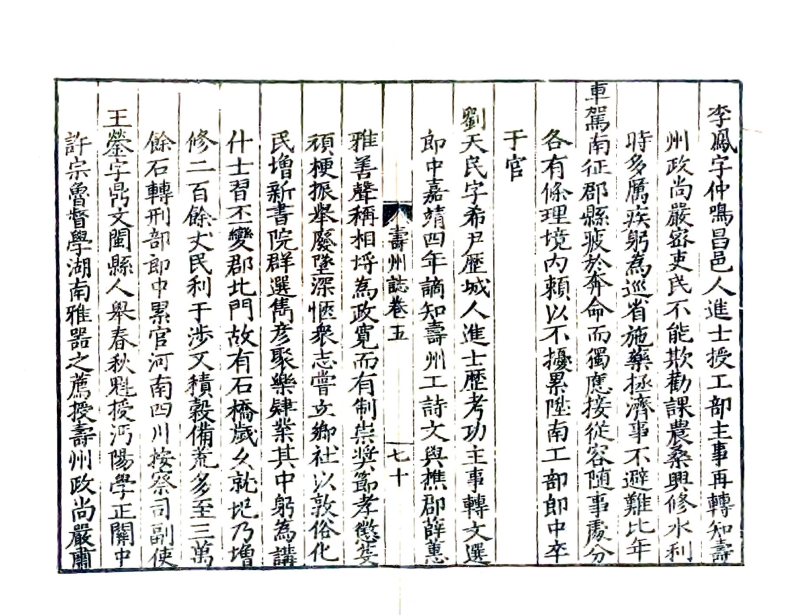 李鳳字仲鳴昌邑人進士授工部主事再轉知壽
州政尚嚴密吏民不能欺勸課農桑興修水利
時多厲疾躬為巡省施藥拯濟事不避難比年
車駕南征郡縣疲於奔命而獨應接從容随事處分
各有條理境内賴以不擾累陞南工部郎中卒
于官
劉天民字希尹歷城人進士歷考功主事轉文選
郎中嘉靖四年謫知壽州工詩文與樵郡薛蕙
壽州誌卷五
七十
雅善聲稱相埒為政寬而有制崇奬節孝懲艾
頑梗振舉廢墜深愜衆志嘗立鄉社以敦俗化
民增新書院群選雋彦聚樂肄業其中躬為講
什士習丕變郡北門故有石橋歲久就圯乃增
修二百餘丈民利于涉又積穀備荒多至三萬
餘石轉刑部郎中累官河南四川按察司副使
王鎣字鼎文閩縣人舉春秋魁授沔陽學正關中
許宗魯督學湖南雅器之薦授壽州政尚嚴肅